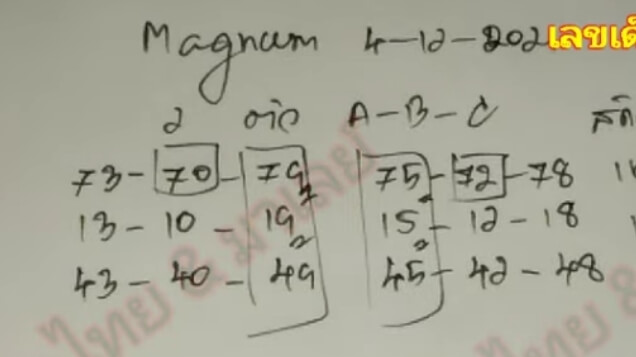 Magnum 4-12-202 เลขเด็
A-B-C
73-70-79 75-72-78
13-10-19 15-12-18
43-40-49 45-42-48
ไทย & มาเลย์